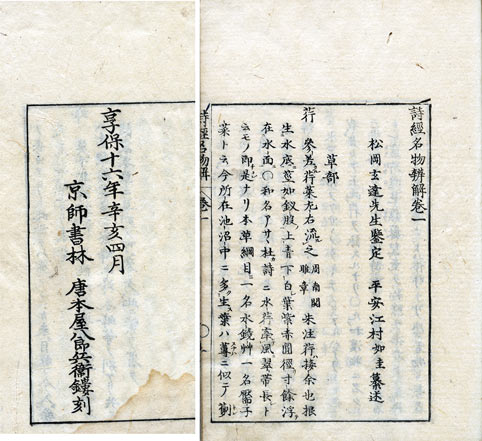 詩經名物辨解卷一
松岡玄達先生鑒定 平安江村如圭纂述
草部
荇 參差荇菜左右流之 周南關雎章 朱注荇接余也根
生水底莖如釵股上青下白葉紫赤圓徑寸餘浮
在水面〇和名アサヽ杜詩ニ水荇牽風翠帶長ト
云モノ即是ナリ本草綱目一名水鏡艸一名靨子
菜ト云今所在池沼中ニ多生葉ハ蓴ニ似テ
詩經名物辨解 卷一
享保十六年辛亥四月
京師書林 唐本屋八郎兵衞鏤刻